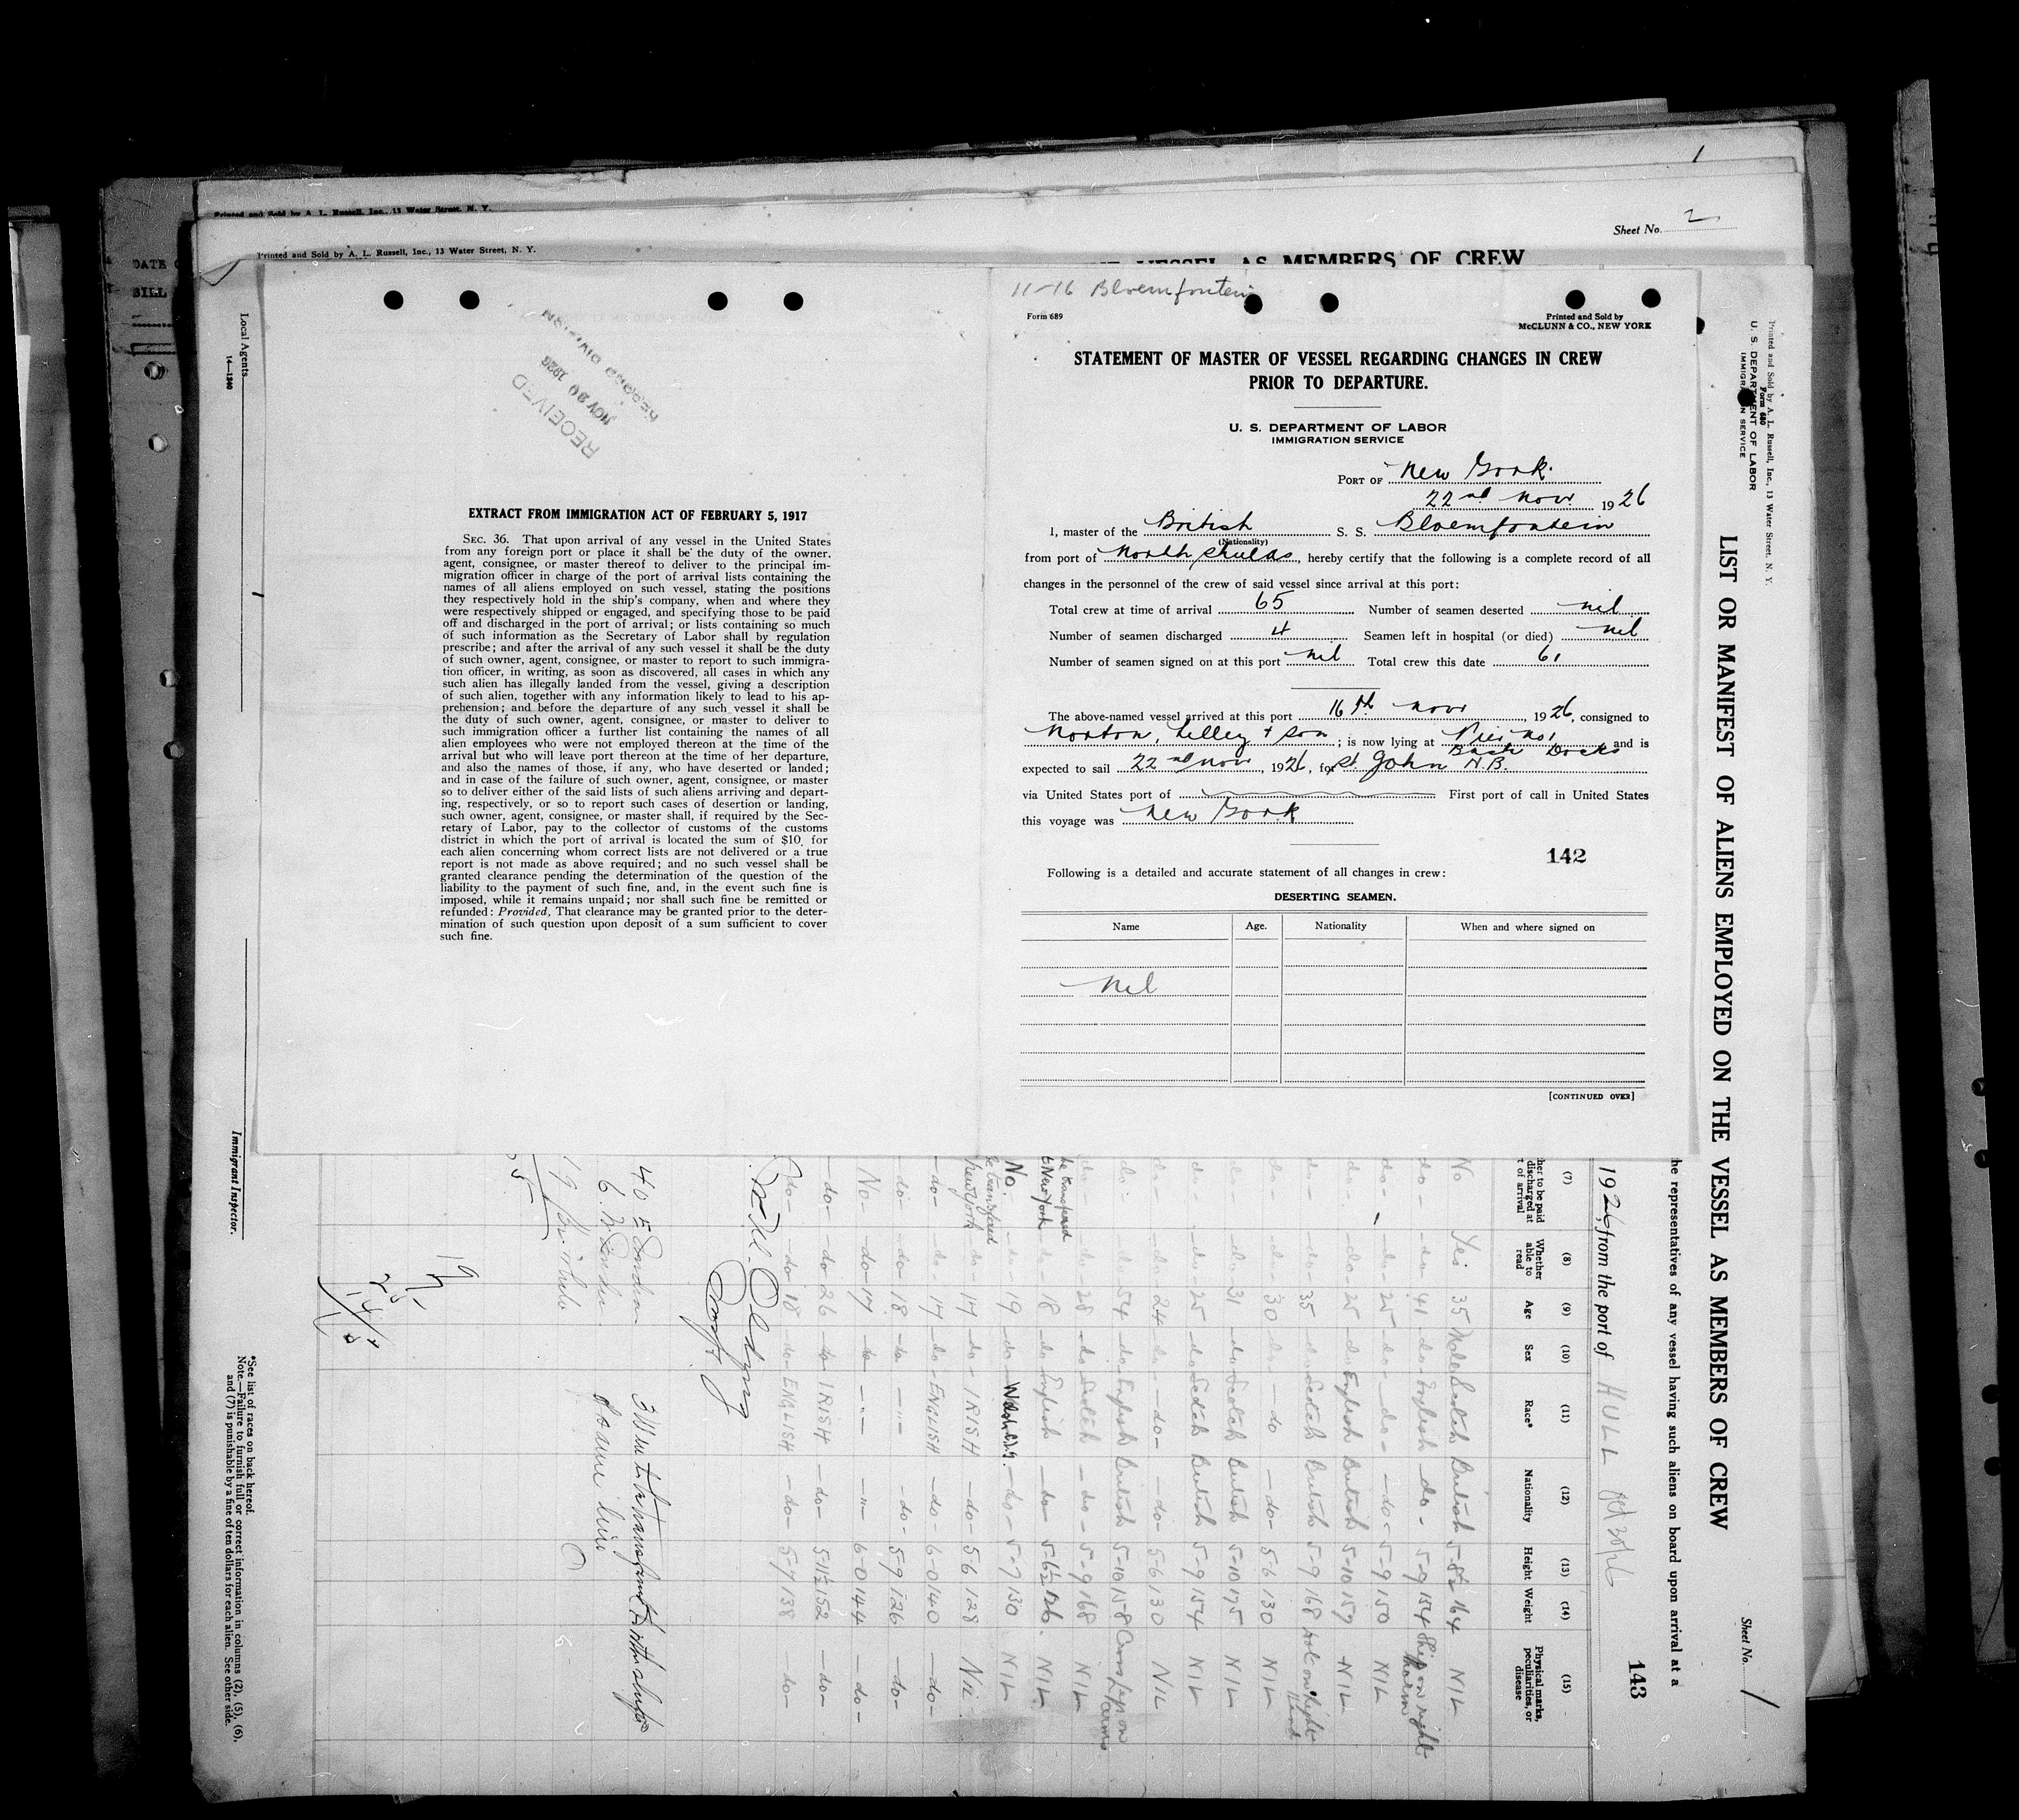 1
Printed and Sold by A. L. Russell, Inc., 13 Water Street, N. Y.
Sheet No. 2
Printed and Sold by A. L. Russell, Inc., 13 Water Street, N. Y.
VESSEL AS MEMBERS OF CREW
DATE
BILL
Local Agents
14—1240
Immigrant Inspector.
*See list of races on back hereof.
Note.—Failure to furnish full or correct information in columns (2), (5), (6),
and (7) is punishable by a fine of ten dollars for each alien. See other side.
RECEIVED
NOV 30 1926
RECORD DIVISION
EXTRACT FROM IMMIGRATION ACT OF FEBRUARY 5, 1917
SEC. 36. That upon arrival of any vessel in the United States
from any foreign port or place it shall be the duty of the owner,
agent, consignee, or master thereof to deliver to the principal im-
migration officer in charge of the port of arrival lists containing the
names of all aliens employed on such vessel, stating the positions
they respectively hold in the ship's company, when and where they
were respectively shipped or engaged, and specifying those to be paid
off and discharged in the port of arrival; or lists containing so much
of such information as the Secretary of Labor shall by regulation
prescribe; and after the arrival of any such vessel it shall be the duty
of such owner, agent, consignee, or master to report to such immigra-
tion officer, in writing, as soon as discovered, all cases in which any
such alien has illegally landed from the vessel, giving a description
of such alien, together with any information likely to lead to his ap-
prehension; and before the departure of any such vessel it shall be
the duty of such owner, agent, consignee, or master to deliver to
such immigration officer a further list containing the names of all
alien employees who were not employed thereon at the time of the
arrival but who will leave port thereon at the time of her departure,
and also the names of those, if any, who have deserted or landed;
and in case of the failure of such owner, agent, consignee, or master
so to deliver either of the said lists of such aliens arriving and depart-
ing, respectively, or so to report such cases of desertion or landing,
such owner, agent, consignee, or master shall, if required by the Sec-
retary of Labor, pay to the collector of customs of the customs
district in which the port of arrival is located the sum of $10 for
each alien concerning whom correct lists are not delivered or a true
report is not made as above required; and no such vessel shall be
granted clearance pending the determination of the question of the
liability to the payment of such fine, and, in the event such fine is
imposed, while it remains unpaid; nor shall such fine be remitted or
refunded: Provided, That clearance may be granted prior to the deter-
mination of such question upon deposit of a sum sufficient to cover
such fine.
11-16 Bloemfontein
Form 689
Printed and Sold by
McCLUNN & CO., NEW YORK
STATEMENT OF MASTER OF VESSEL REGARDING CHANGES IN CREW
PRIOR TO DEPARTURE.
U. S. DEPARTMENT OF LABOR
IMMIGRATION SERVICE
PORT OF New York.
22nd Novr. 1926
I, master of the British S. S. Bloemfontein
(Nationality)
from port of North Shields, hereby certify that the following is a complete record of all
changes in the personnel of the crew of said vessel since arrival at this port:
Total crew at time of arrival 65 Number of seamen deserted nil
Number of seamen discharged 4 Seamen left in hospital (or died) nil
Number of seamen signed on at this port nil Total crew this date 61
The above-named vessel arrived at this port 16th Novr, 1926, consigned to
Norton, Lilley & Son; is now lying at Pier No 1 Bush Docks and is
expected to sail 22nd Novr, 1926, for St. John N.B.
via United States port of First port of call in United States
this voyage was New York
142
Following is a detailed and accurate statement of all changes in crew:
DESERTING SEAMEN.
Name Age. Nationality When and where signed on
Nil
[CONTINUED OVER]
Printed and Sold by A. L. Russell, Inc., 13 Water Street, N. Y.
Form 680
U. S. DEPARTMENT OF LABOR
IMMIGRATION SERVICE
LIST OR MANIFEST OF ALIENS EMPLOYED ON THE VESSEL AS MEMBERS OF CREW
Sheet No. 1
he representatives of any vessel having such aliens on board upon arrival at a
143
1926, from the port of HULL
(7) (8) (9) (10) (11) (12) (13) (14) (15)
her to be paid discharged at t of arrival Whether able to read Age Sex Race* Nationality Height Weight Physical marks, peculiarities, or disease
No Yes 35 Male Scotch British 5-8½ 164 NIL
-do- -do- 41 -do- English -do- 5-9 154
-do- -do- 25 -do- -do- -do- 5-9 150 NIL
-do- -do- 25 -do- English British 5-10 159 NIL
-do- -do- 35 -do- Scotch British 5-9 168
-do- 30 -do- -do- -do- 5-6 130 NIL
-do- -do- 31 -do- Scotch British 5-10 175 NIL
-do- -do- 25 -do- Scotch British 5-9 154 NIL
-do- -do- 24 -do- -do- -do- 5-6 130 NIL
-do- -do- 54 -do- English British 5-10 158
-do- 28 -do- Scotch -do- 5-9 168 NIL
to New York -do- 18 -do- English -do- 5-6½ 126 NIL
No. -do- 19 -do- Welsh -do- 5-7 130 NIL
New York -do- 17 -do- IRISH -do- 5-6 128 NIL
-do- -do- 17 -do- ENGLISH -do- 6-0 140 -do-
-do- -do- 18 -do- -"- -do- 5-9 126 -do-
No- -do- 17 -do- -"- -"- 6-0 144 -do-
-do- -do- 26 -do- IRISH -do- 5-11½ 152 -do-
-do- -do- 18 -do- ENGLISH -do- 5-7 138 -do-